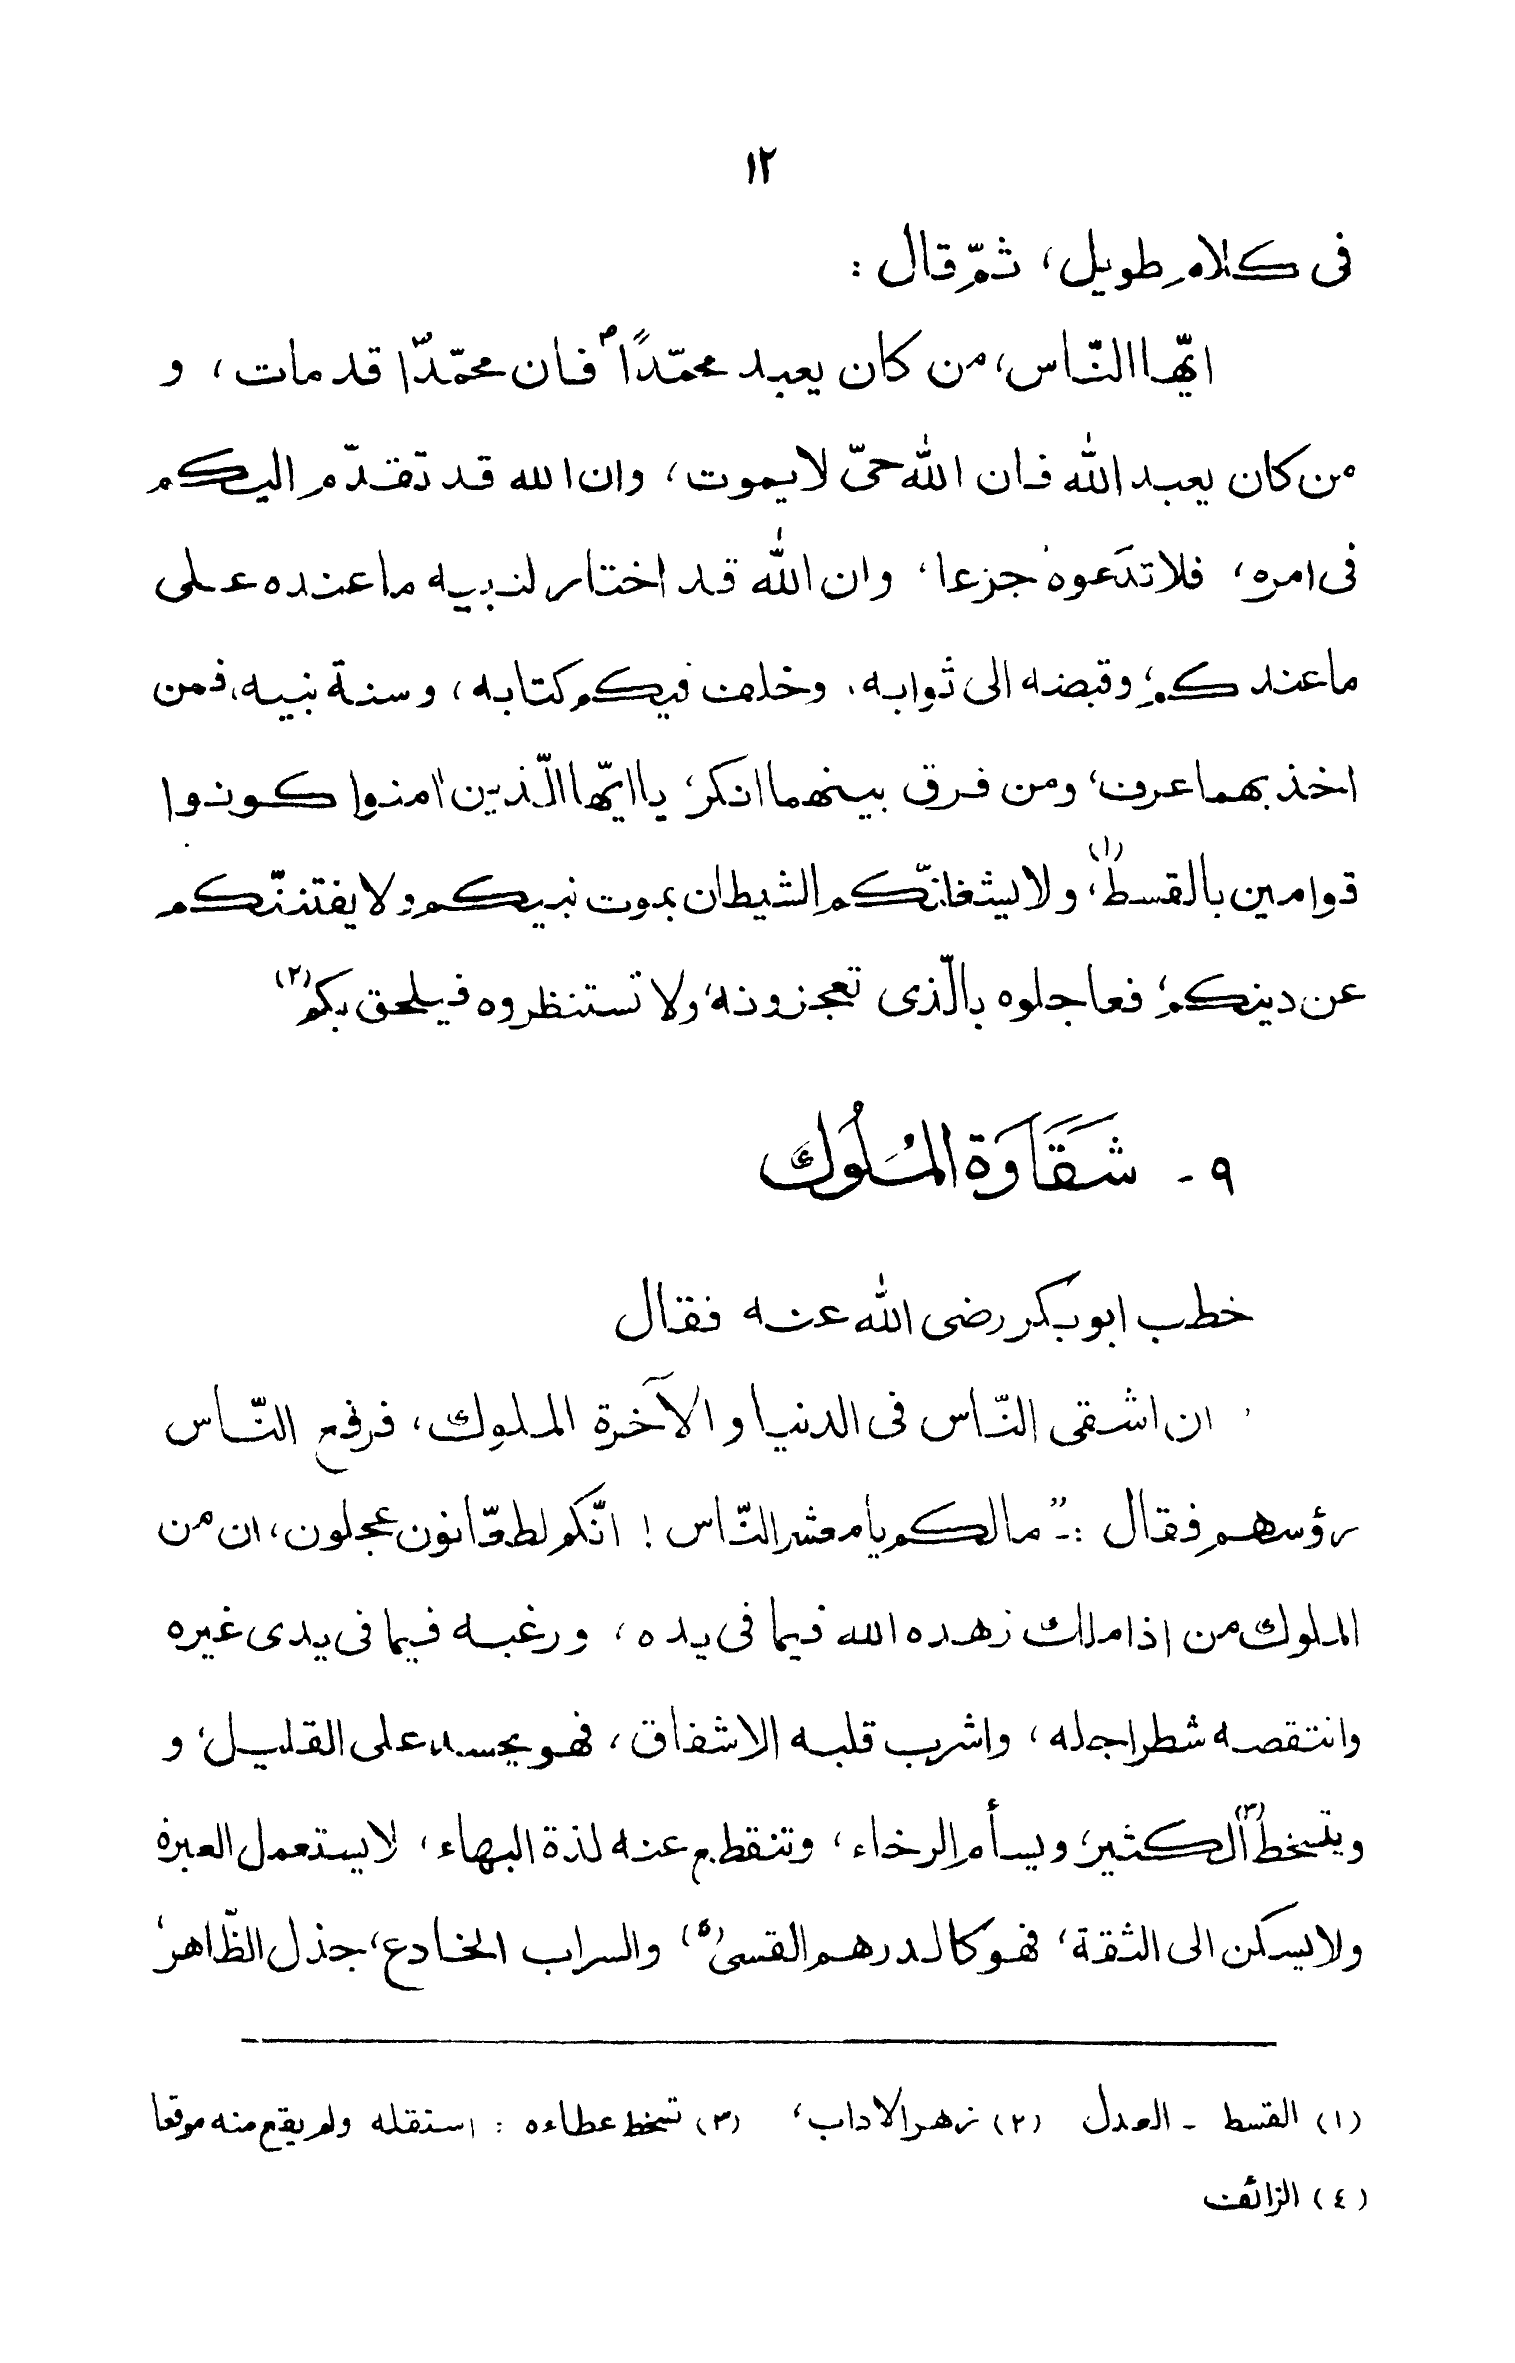 ١٢
فى كلام طويل، ثمّ قال :
ايّها النّاس، من كان يعبد محمّدًا ؐ فان محمّدًا قد مات، و
من كان يعبد الله فان الله حىّ لا يموت، وان الله قد تقدّم اليكم
فى امره، فلا تدَعوه جزعا، وان الله قد اختار لنبيه ما عنده على
ما عندكم، وقبضه الى ثوابه، وخلف فيكم كتابه، وسنة نبيه، فمن
اخذ بهما عرف، ومن فرق بينهما انكر، يا ايّها الّذين اٰمنوا كونوا
قوامين بالقسط(١)، ولا يشغلنّكم الشيطان بموت نبيكم ولا يفتننّكم
عن دينكم، فعاجلوه بالّذى تعجزونه، ولا تستنظروه فيلحق بكم(٢)
٩ - شَقَاوَة المُلُوك
خطب ابو بكر رضى الله عنه فقال
ان اشقى النّاس فى الدنيا و الآخرة الملوك، فرفع النّاس
رؤسهم فقال :- "ما لكم يا معشر النّاس ! انّكم لطعّانون عجلون، ان من
الملوك من اذا ملك زهده الله فيما فى يده، ورغبه فيما فى يدى غيره
وانتقصه شطر اجله، واشرب قلبه الاشفاق، فهو يحسد على القليل، و
ويتسخط(٣) الكثير، ويسأم الرخاء، وتنقطع عنه لذة البهاء، لا يستعمل العبرة
ولا يسكن الى الثقة، فهو كالدرهم القسى(٤)، والسراب الخادع، جذل الظّاهر،
(١) القسط - العدل (٢) زهر الاداب، (٣) تسخط عطاءه : استقله ولم يقع منه موقعا
(٤) الزائف